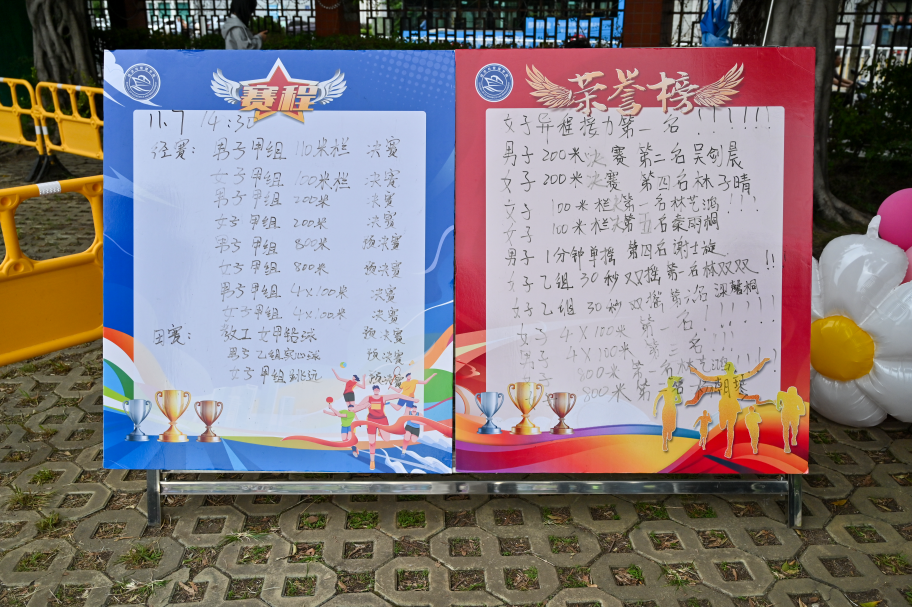 赛程
11.7 14:30
径赛: 男子甲组 110米栏 决赛
女子甲组 100米栏 决赛
男子甲组 200米 决赛
女子甲组 200米 决赛
男子甲组 800米 预决赛
女子甲组 800米 预决赛
男子甲组 4×100米 决赛
女子甲组 4×100米 决赛
田赛: 教工女甲铅球 预决赛
男子乙组实心球 预决赛
女子甲组跳远 预决赛
荣誉榜
女子异程接力第一名!!!!!!
男子200米决赛 第二名吴剑晨
女子200米决赛 第四名林子晴
女子 100米栏决第一名林艺鸿!!!
女子 100米栏决第五名
男子1分钟单摇 第四名谢士旋
女子乙组30秒双摇第一名林双双!!
女子乙组30秒双摇第六名
女子 4×100米 第一名!!!!!!
男子 4×100米 第三名!!!
女子 800米 第一名
800米 第